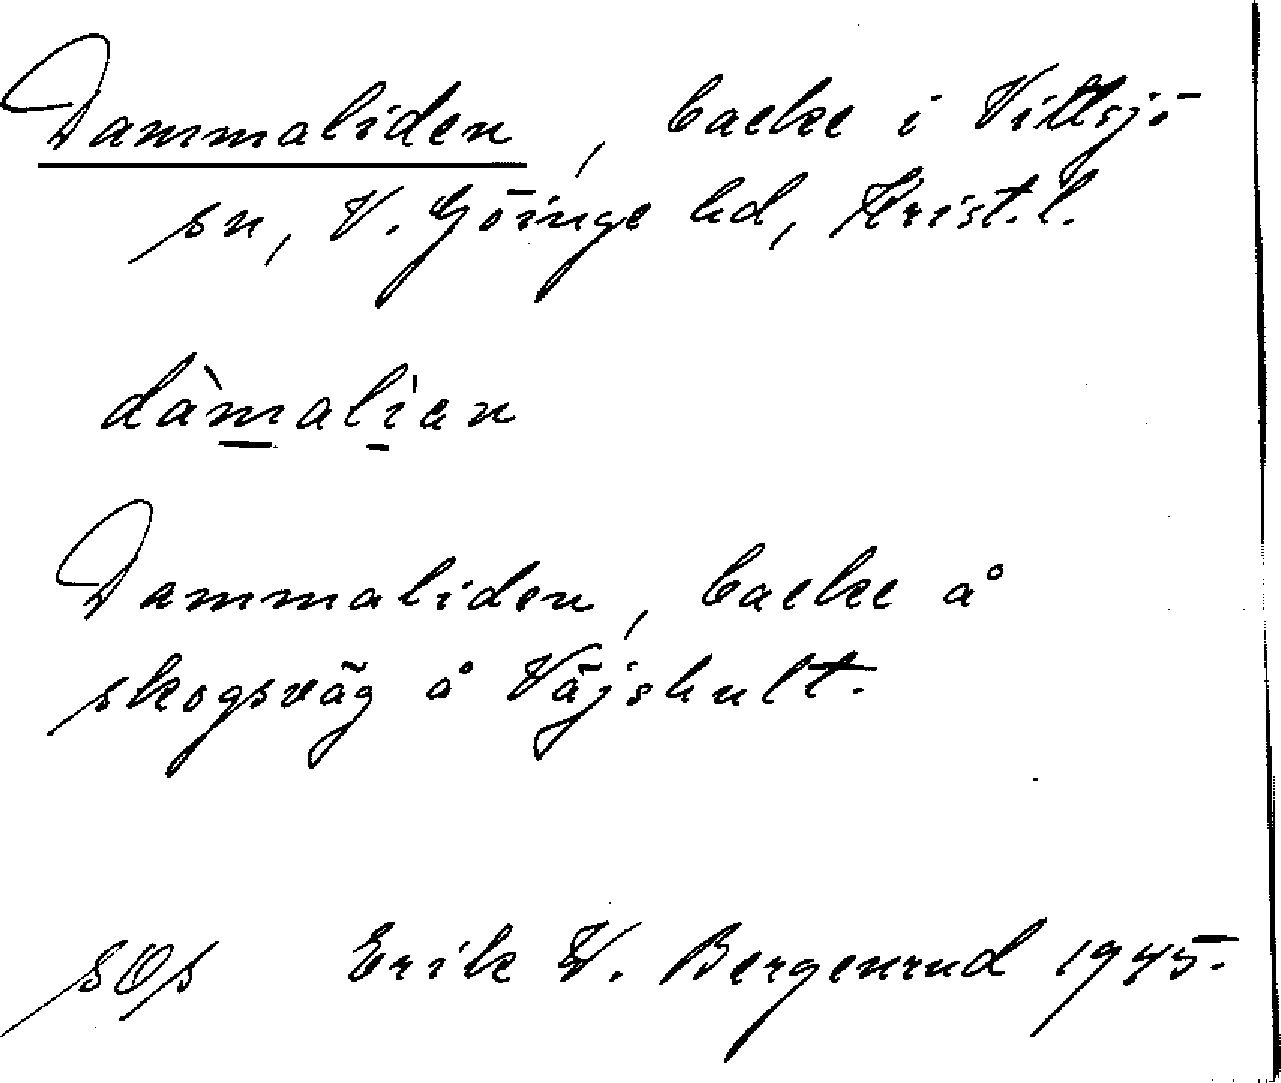 Dammaliden, backe i Vittsjö
sn, V. Göinge hd, Krist.l.
dàmali̍an
Dammaliden, backe å
skogsväg å Väjshult.
sOs Erik W. Bergenrud 1945.